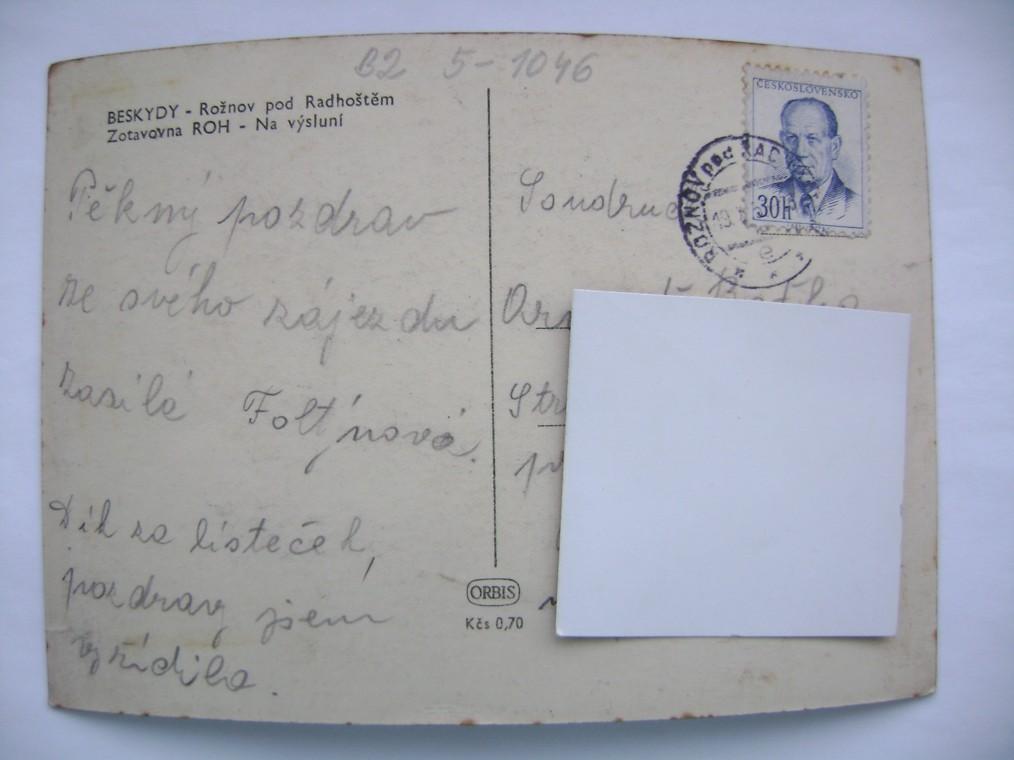 B2 5-1046
BESKYDY - Rožnov pod Radhoštěm
Zotavovna ROH - Na výsluní
Pěkný pozdrav
ze svého zájezdu
zasílá Foltýnová.
Dík za lísteček,
pozdravy jsem
vyřídila.
ORBIS
Kčs 0,70
ČESKOSLOVENSKO
30h
ROŽNOV pod RADH
19
e
Soudruh
Str